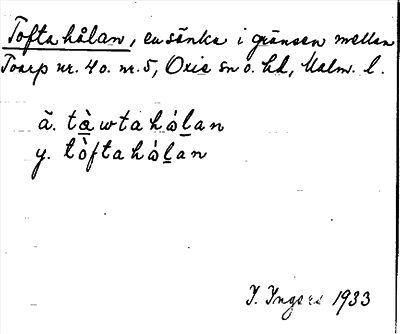 Toftahålan, en sänka i gränsen mellan
Toarp nr. 4 o. nr. 5, Oxie sn o. hd, Malm. l.
ä. tàwtahålan
y. tòftahålan
I. Ingers 1933